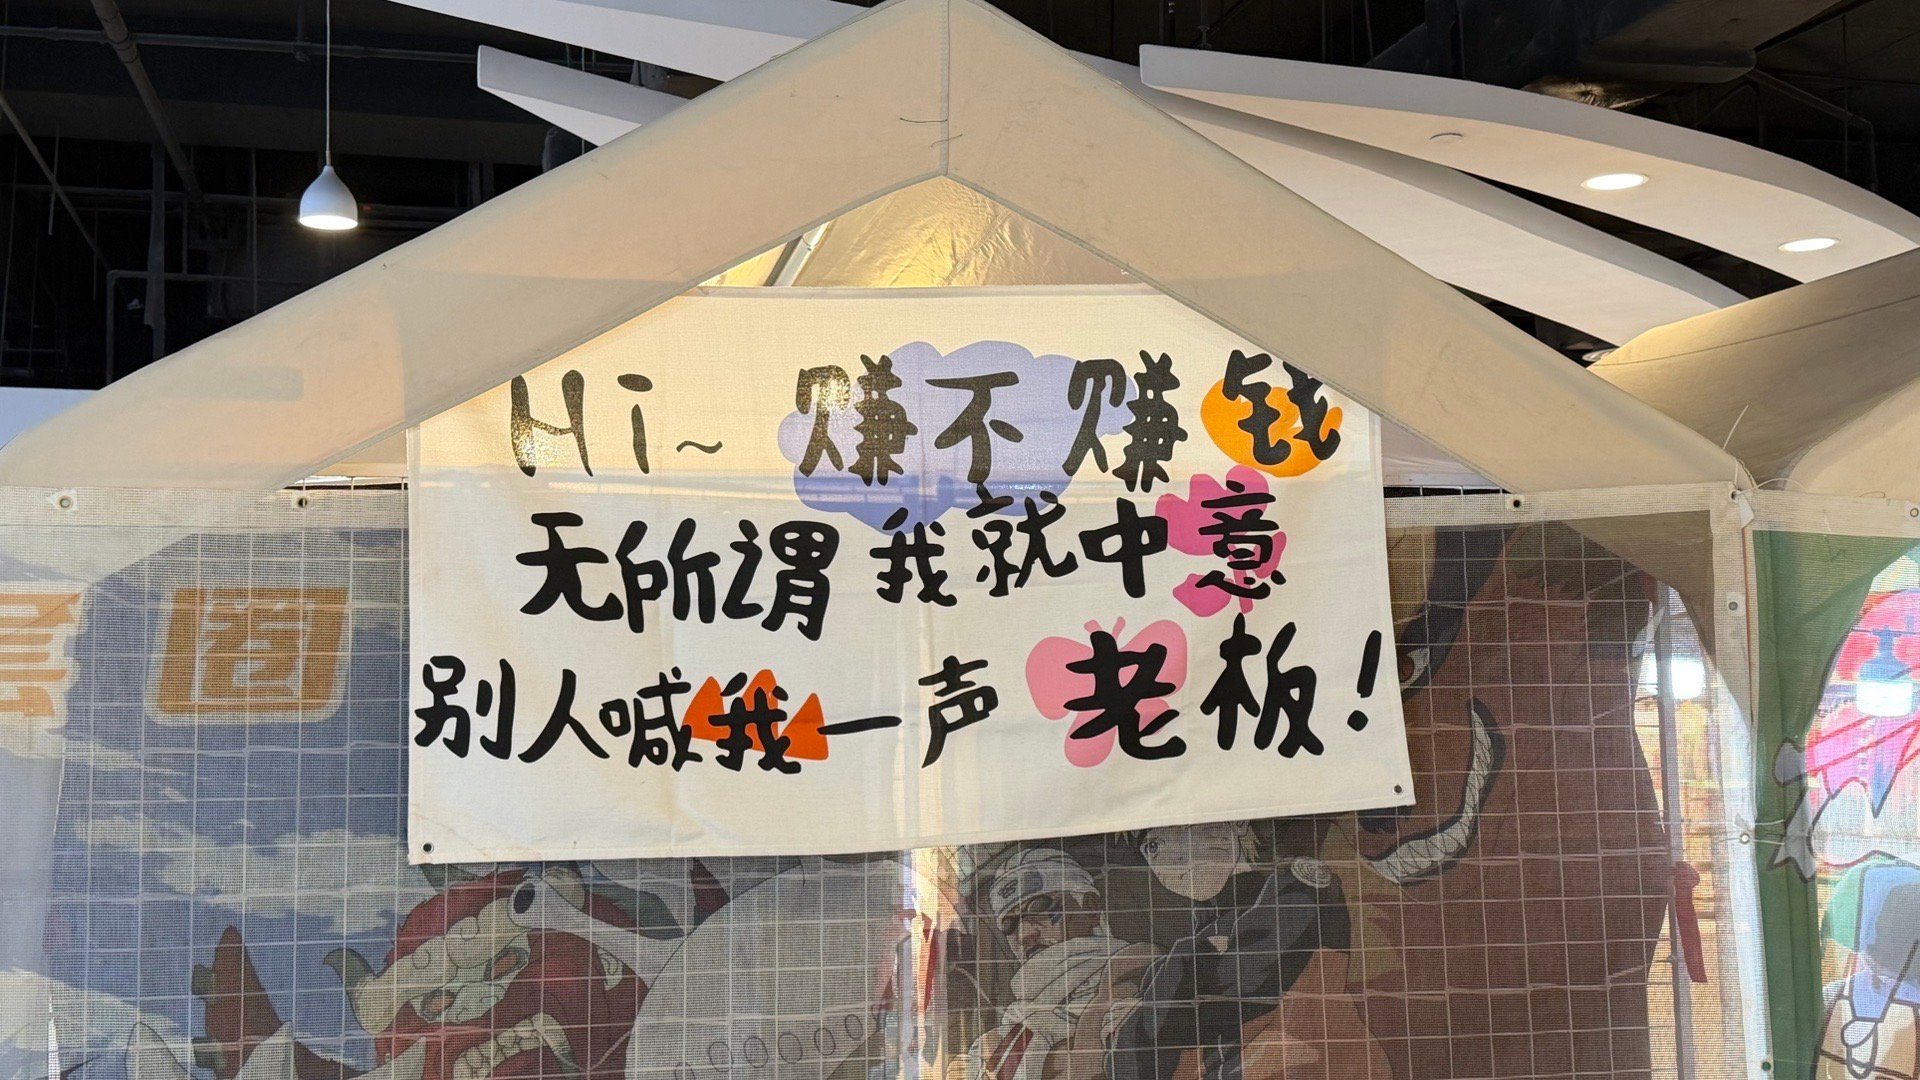 Hi~ 赚不赚钱
无所谓 我就中意
别人喊我一声老板!
圈